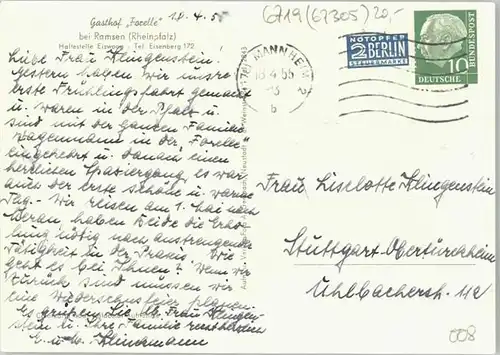 Gasthof „Forelle"
bei Ramsen (Rheinpfalz)
Haltestelle Eiswoog · Tel. Eisenberg 172
18.4.5
6719 (67305) 20,-
MANNHEIM 2
18.4.55
b
NOTOPFER
2 BERLIN
STEUERMARKE
DEUTSCHE
BUNDESPOST
10
Liebe Frau Klingenstein!
Gestern haben wir unsre
erste Frühlingsfahrt gemacht
u. waren in der Pfalz u.
sind mit der ganzen Familie
Wagenmann in der „Forelle"
eingekehrt u. danach einen
herrlichen Spaziergang, es war
auch der erste schöne u. warme
Tag. - Wir reisen am 1. Mai nach
Meran, haben beide die Erho-
lung nötig nach anstrengender
Tätigkeit in der Praxis. Wie
geht es bei Ihnen? Wenn wir
zurück sind müssen wir
eine Wiedersehensfeier planen.
Es grüßen Sie lb. Frau Klingen-
stein u. Ihre Familie recht herzlich
E. u. Klinckmann
Frau Liselotte Klingenstein
Stuttgart-Obertürkheim
Uhlbacherstr. 112
008